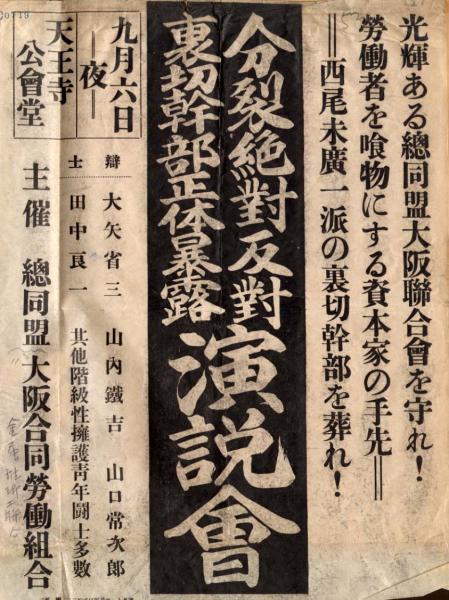 光輝ある總同盟大阪聯合會を守れ!
勞働者を喰物にする資本家の手先＝
＝西尾末廣一派の裏切幹部を葬れ!
分裂絶對反對
裏切幹部正体暴露
演説會
九月六日
―夜―
天王寺
公會堂
辯士
大矢省三 山內鐵吉 山口常次郎
田中良一 其他階級性擁護青年鬪士多數
主催 總同盟大阪合同勞働組合